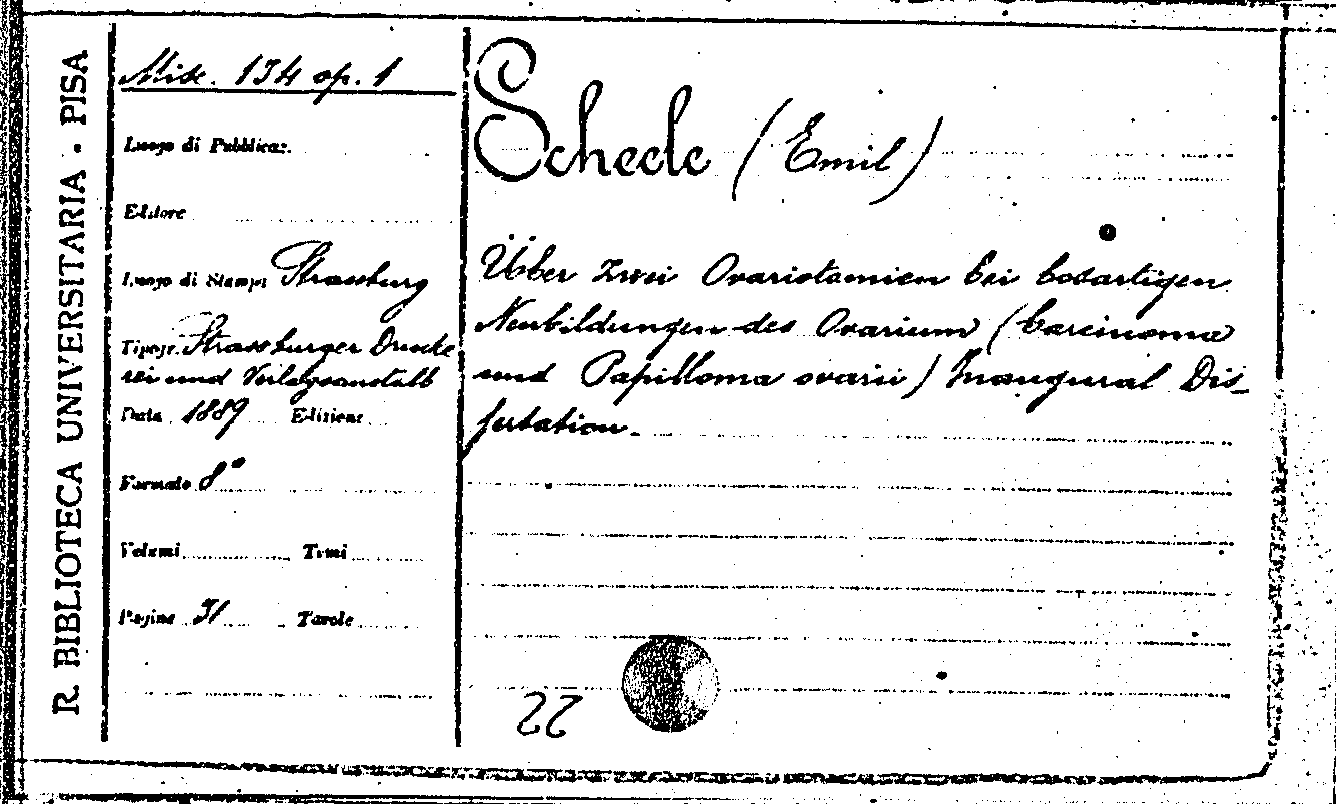 R. BIBLIOTECA UNIVERSITARIA · PISA
Misc. 134 op. 1
Luogo di Pubblicaz.
Editore
Luogo di Stampa Strassburg
Tipogr. Strassburger Drucke
rei und Verlagsanstalt
Data 1889 Edizione
Formato 8°
Volumi Tomi
Pagine 31 Tavole
Scheele (Emil)
Über zwei Ovariotomien bei bösartigen
Neubildungen des Ovarium (Carcinoma
und Papilloma ovarii) Inaugural Dis_
sertation.
22